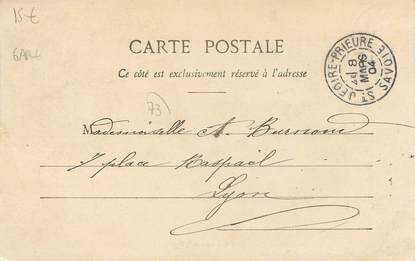 15 €
GARE
CARTE POSTALE
Ce côté est exclusivement réservé à l'adresse
ST JEOIRE-PRIEURE SAVOIE
8
MARS
04
73
Mademoiselle A. Burnoud
7 place Raspail
Lyon